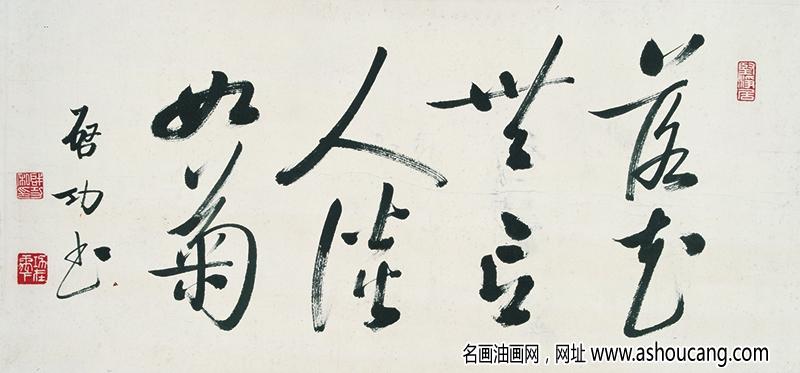 落花
無言
人淡
如菊
啓功书
名画油画网，网址 www.ashoucang.com